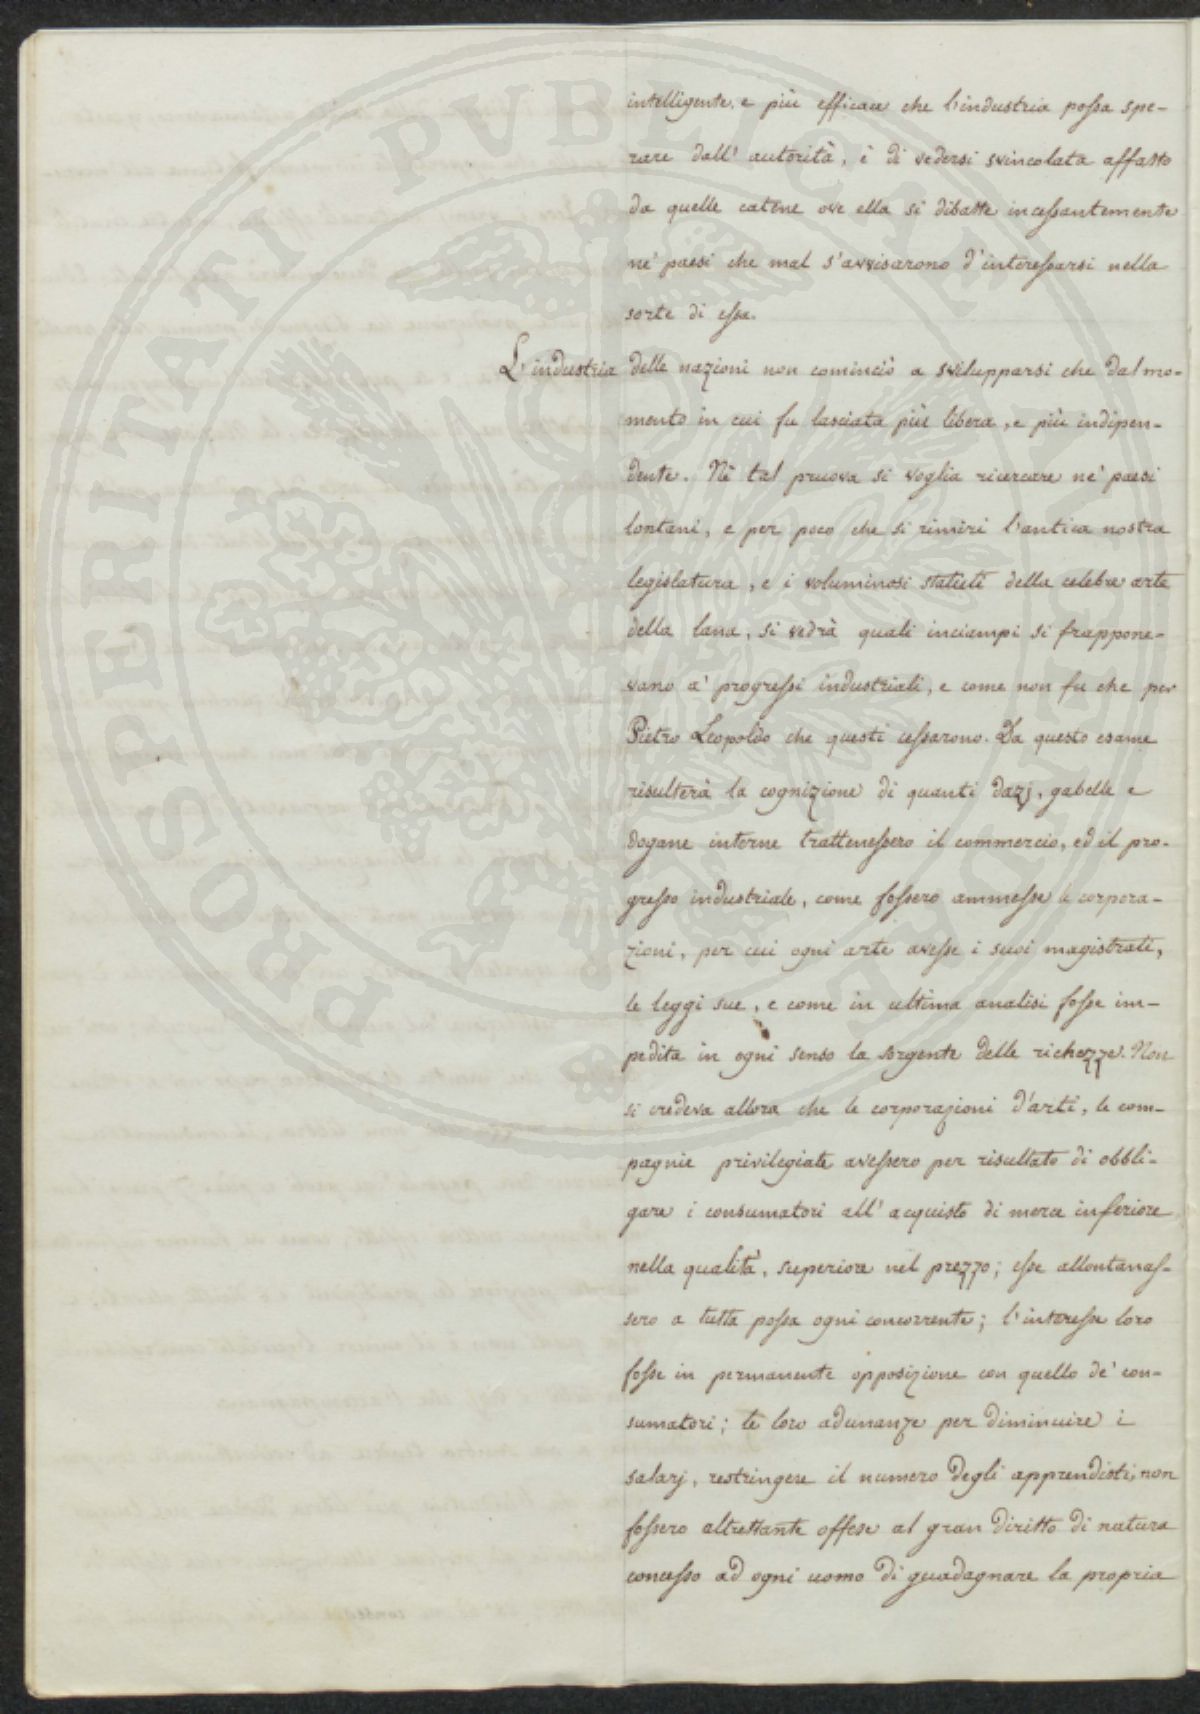 intelligente, e più efficace che l'industria possa spe-
rare dall' autorità, è di vedersi svincolata affatto
da quelle catene ove ella si dibatte incessantemente
ne' paesi che mal s'avvisarono d'interessarsi nella
sorte di essa.
L'industria delle nazioni non cominciò a svilupparsi che dal mo-
mento in cui fu lasciata più libera, e più indipen-
dente. Nè tal pruova si voglia ricercare ne' paesi
lontani, e per poco che si rimiri l'antica nostra
legislatura, e i voluminosi statuti della celebre arte
della lana, si vedrà quali inciampi si frappone-
vano a' progressi industriali, e come non fu che per
Pietro Leopoldo che questi cessarono. Da questo esame
risulterà la cognizione di quanti dazj, gabelle e
dogane interne trattenessero il commercio, ed il pro-
gresso industriale, come fossero ammesse le corpora-
zioni, per cui ogni arte avesse i suoi magistrati,
le leggi sue, e come in ultima analisi fosse im-
pedita in ogni senso la sorgente delle richezze. Non
si credeva allora che le corporazioni d'arti, le com-
pagnie privilegiate avessero per risultato di obbli-
gare i consumatori all' acquisto di merce inferiore
nella qualità, superiore nel prezzo; esse allontanas-
sero a tutta possa ogni concorrente; l'interesse loro
fosse in permanente opposizione con quello de' con-
sumatori; le loro adunanze per diminuire i
salarj, restringere il numero degli apprendisti, non
fossero altrettante offese al gran diritto di natura
concesso ad ogni uomo di guadagnare la propria
PROSPERITATI PVBLICAE AVGENDAE